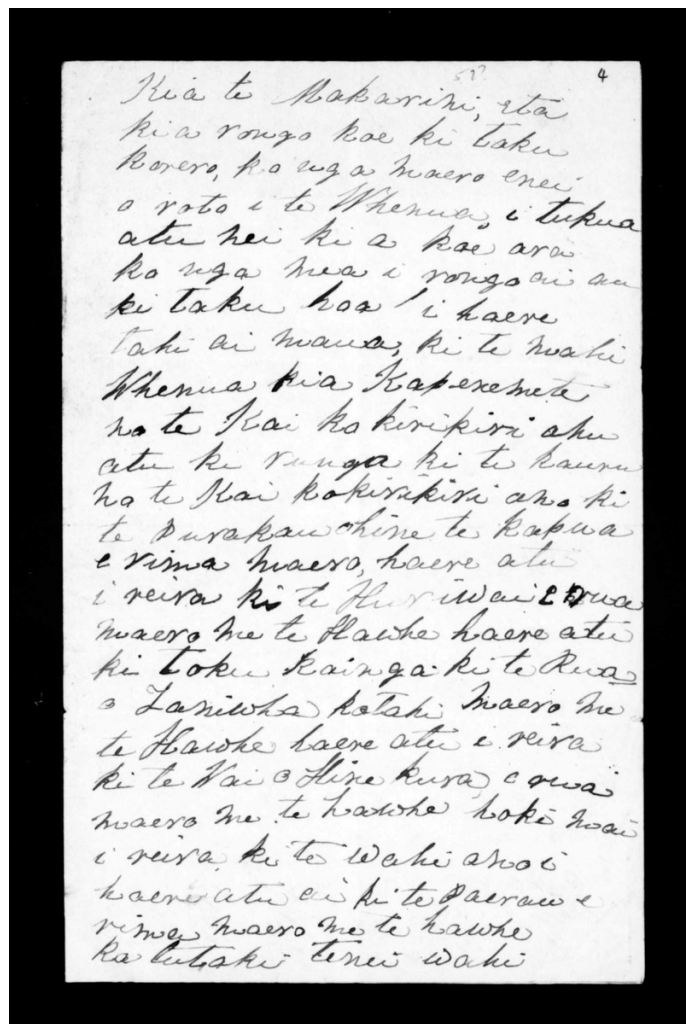 4
Kia te Makarini, eta
kia rongo koe ki taku
korero, ko nga maero enei
o roto i te Whenua, i tukua
atu nei ki a koe ara
ko nga mea i rongo ai au
ki taku hoa i haere
tahi ai maua, ki te mahi
Whenua kia Kaperemete
no te Kai kokirikiri ahu
atu ki runga ki te hauru
no te Kai kokirikiri ano ki
te Purakau o hine te kapua
e rima maero, haere atu
i reira ki te Huriwai e rua
maero me te Hawhe haere atu
ki toku Kainga ki te Rua
o Taniwha kotahi maero me
te Hawhe haere atu i reira
ki te Wai o Hine kura, e rua
maero me te hawhe hoki mai
i reira ki te wahi ano i
haere atu ai ki te Paerau e
rima maero me te hawhe
ka tutaki tenei wahi